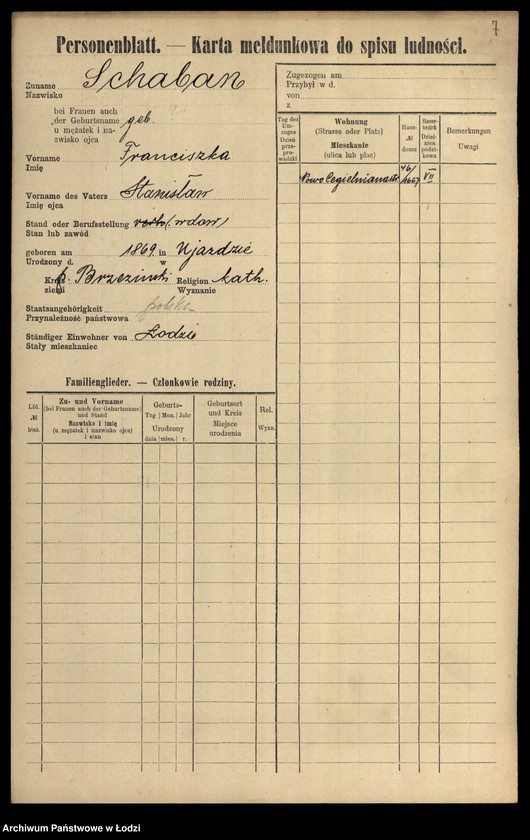 7
Personenblatt. — Karta meldunkowa do spisu ludności.
Zuname Schaban
Nazwisko
bei Frauen auch
der Geburtsname geb.
u mężatek i na-
zwisko ojca
Vorname Franciszka
Imię
Vorname des Vaters Stanisław
Imię ojca
Stand oder Berufsstellung (wdow)
Stan lub zawód
geboren am 1869 in Ujazdzie
Urodzony d. w
Kreis p. Brzezinski Religion kath.
ziemi Wyznanie
Staatsangehörigkeit polska
Przynależność państwowa
Ständiger Einwohner von Łodzi
Stały mieszkaniec
Familienglieder. — Członkowie rodziny.
Lfd.
№
bież.
Zu- und Vorname
(bei Frauen auch der Geburtsname)
und Stand
Nazwisko i imię
(u mężatek i nazwisko ojca)
i stan
Geburts-
Tag Mon. Jahr
Urodzony
dnia mies. r.
Geburtsort
und Kreis
Miejsce
urodzenia
Rel.
Wyzn.
Zugezogen am
Przybył w d.
von
z.
Tag des
Um-
zuges
Dzień
prze-
prowadzki
Wohnung
(Strasse oder Platz)
Mieszkanie
(ulica lub plac)
Haus-
№
domu
Steuer-
bezirk
Dziel-
nica
podat-
kowa
Bemerkungen
Uwagi
Nowo Cegielniana 46/ VII
Archiwum Państwowe w Łodzi